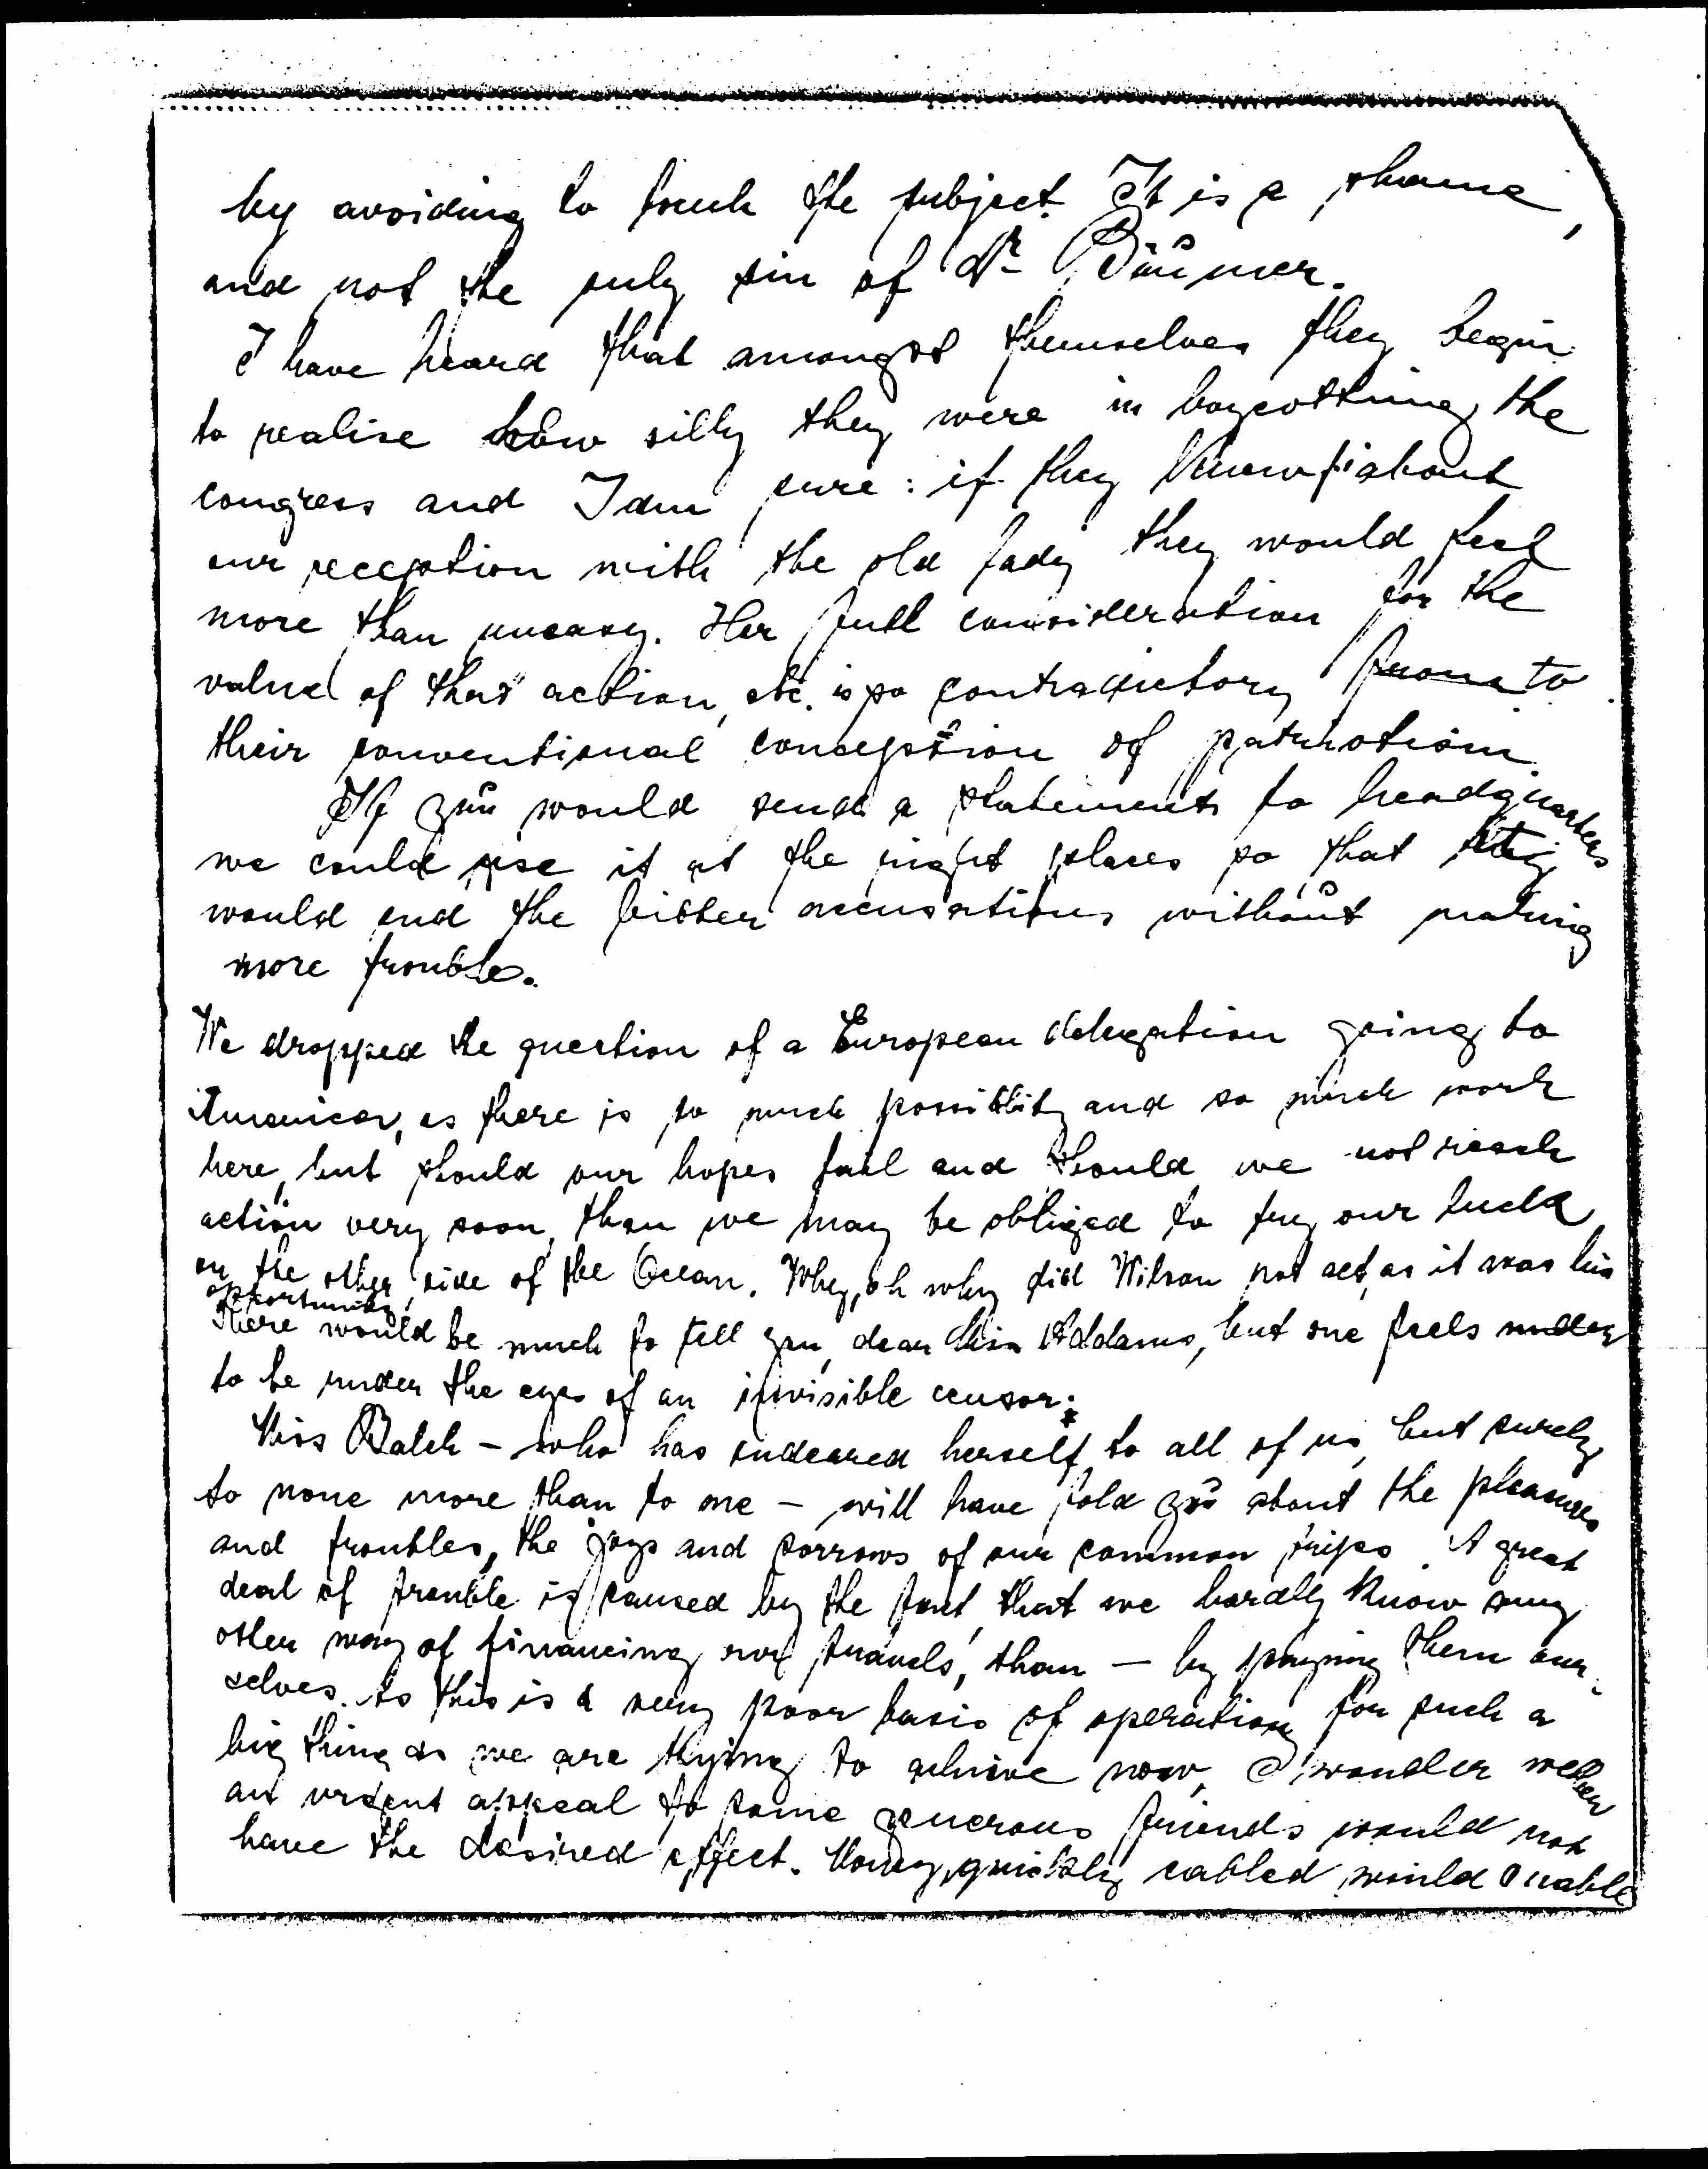 by avoiding to touch the subject. It is a shame,
and not the only sin of Dr Bäumer.
I have heard that amongst themselves they begin
to realise how silly they were in boycotting the
congress and I am sure: if they knew about
our reception with the old lady they would feel
more than uneasy. Her full consideration for the
value of that action, etc. is so contradictory from to
their conventional conception of patriotism.
If you would send a statement to headquarters
we could use it at the right places so that
would end the bitter accusations without making
more trouble.
We dropped the question of a European delegation going to
America, as there is so much possibility and so much work
here, but should our hopes fail and should we not reach
action very soon, then we may be obliged to try our luck
on the other side of the Ocean. Why, oh why did Wilson not act, as it was his
opportunity!
There would be much to tell you, dear Miss Addams, but one feels under
to be under the eyes of an invisible censor.
Miss Balch – who has endeared herself to all of us, but surely
to none more than to me – will have told you about the pleasures
and troubles, the joys and sorrows of our common trips. A great
deal of trouble is caused by the fact, that we hardly know any
other way of financing our travels, than — by paying them our-
selves. As this is a very poor basis of operation for such a
big thing as we are trying to achive now, I wonder wether
an urgent appeal to some generous friends would not
have the desired effect. Money, quickly cabled would enable